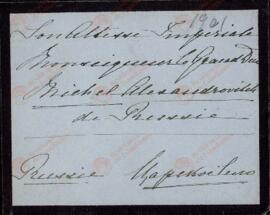 1901
Son Altesse Impériale
Monseigneur le Grand Duc
Michel Alexandrovitch
de Russie
Russie